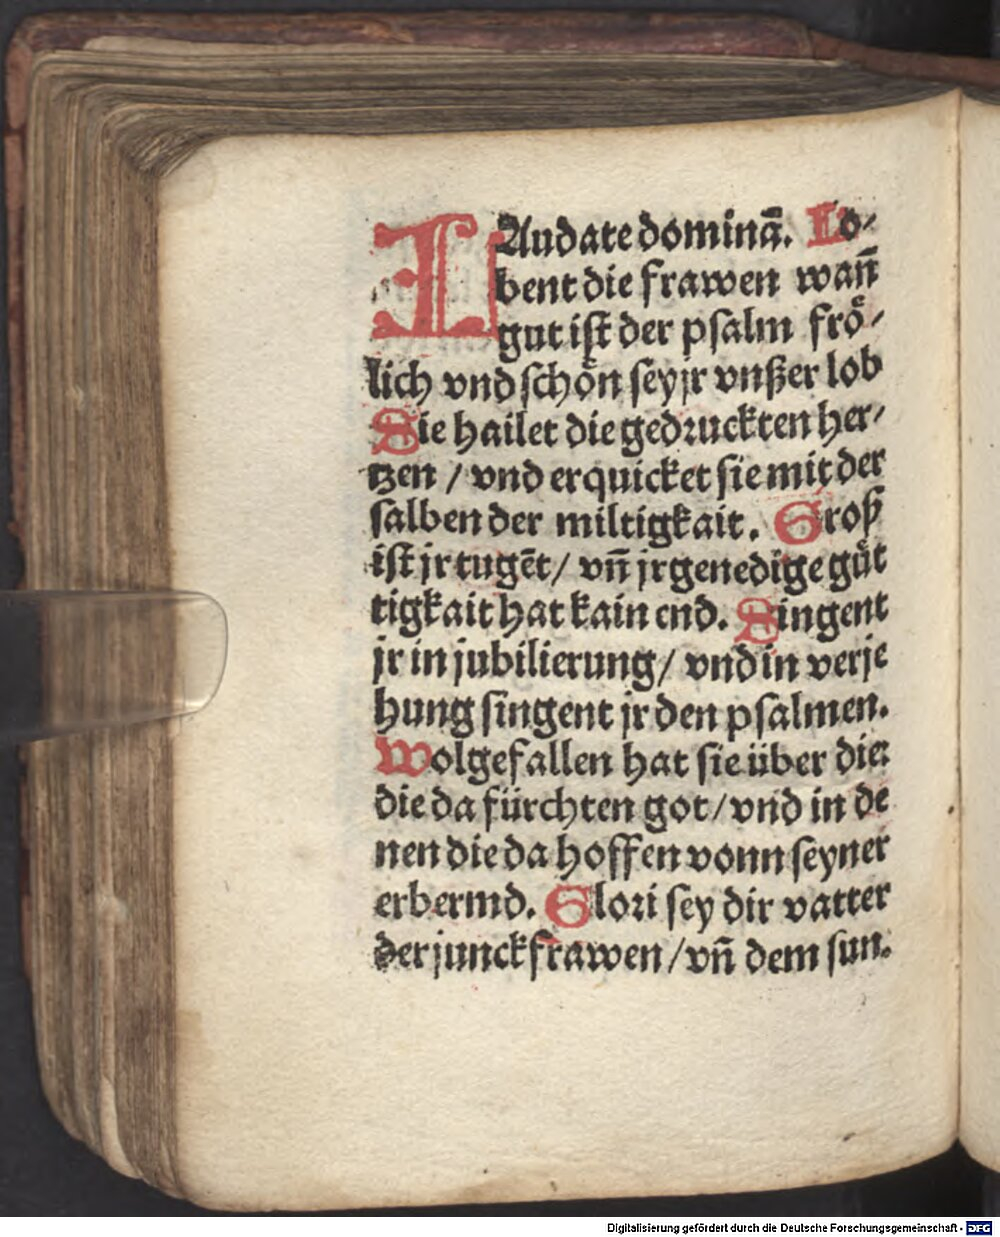 LAudate dominā. Lo-
bent die frawen wañ
gut ist der psalm frö-
lich vnd schön sey jr vnßer lob
Sie hailet die gedruckten her-
tzen / vnd erquicket sie mit der
salben der miltigkait. Groß
ist jr tugēt / vñ jr genedige güt
tigkait hat kain end. Singent
jr in jubilierung / vnd in verje
hung singent jr den psalmen.
Wolgefallen hat sie über die:
die da fürchten got / vnd in de
nen die da hoffen vonn seyner
erbermd. Glori sey dir vatter
der junckfrawen / vñ dem sun.
Digitalisierung gefördert durch die Deutsche Forschungsgemeinschaft - DFG